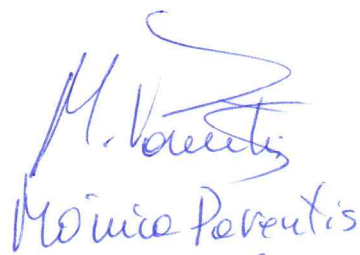 M. Parentis
Mónica Parentis